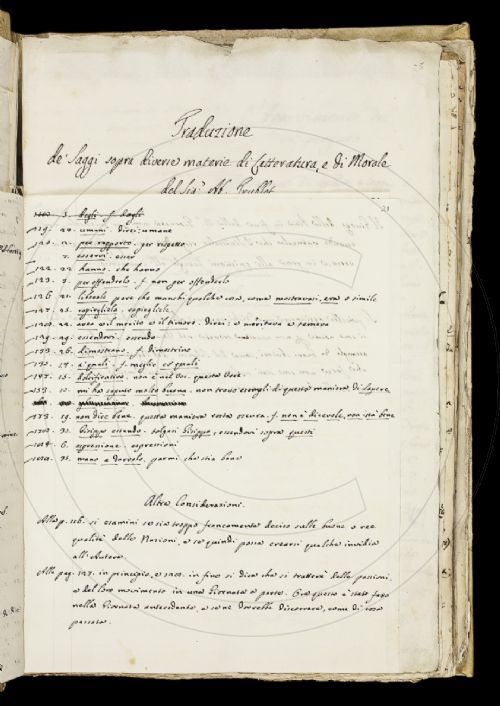 23
Traduzione
de' Saggi sopra diverse materie di Letteratura, e di Morale
del Sig.r Ab. Trublet
21
3. degli. f. dagli
119. umani. direi: umane
120. 12. per rapporto. per rispetto
7. esservi. esser
122. 22. hanno. che hanno
123. 5. per offenderlo. f. non per offenderlo
126. 21. liberale. pare che manchi qualche cosa, come mostravasi, era o simile
127. 25. ropiegliele. ropiegliele
22. avea il merito e il timore. direi: e meritava e temeva
129. 29. essendovi. essendo
133. 26. dimostrano. f. dimostrino
135. 17. a' quali. f. meglio ed quali
147. 15. non è nel Voc. questa voce.
153. 10. mi ha saputo molto buona. non trovo esempli di questa maniera di sapere
173. 19. non dice bene. questa maniera resta oscura. f. non è dicevole, non istà bene
31. essendo. essendovi sopra questi
6. espressione. espressioni
31. mano a parmi che stia bene
Altre Considerazioni.
Alla p. 116. si esamini se sia troppo francamente deciso sulle buone o ree
qualità delle Nazioni, e se quindi possa crearsi qualche invidia
all'Autore.
Alla pag. 127. in principio, e in fine si dice che si tratterà delle passioni
e del loro movimento in una Giornata a parte. Ora questo è stato fatto
nella Giornata antecedente, e se ne dovrebbe discorrere, come di cosa
passata.